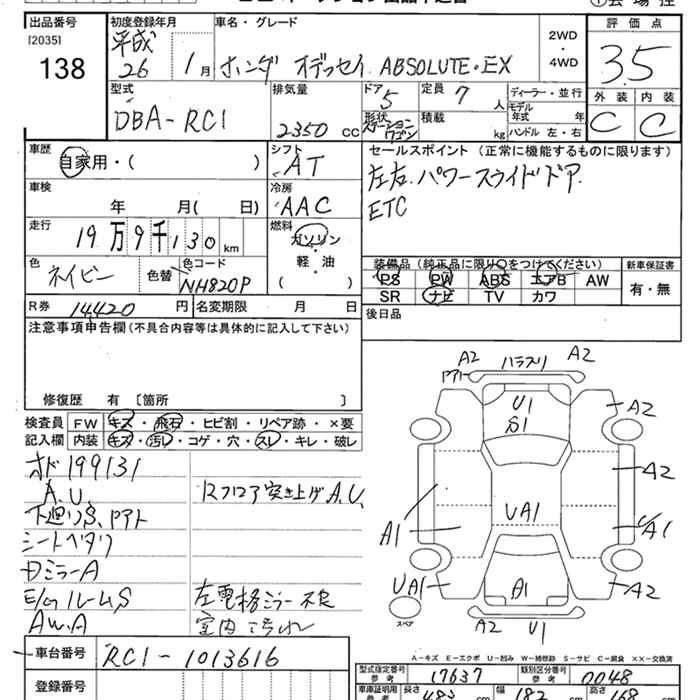 出品番号
[2035]
138
初度登録年月
平成
26 1月
車名・グレード
ホンダ オデッセイ ABSOLUTE・EX
2WD
・
4WD
評価点
3.5
外装 内装
C C
型式
DBA-RC1
排気量
2350 cc
ドア
5
形状
ステーションワゴン
定員
7人
積載
kg
ディーラー・並行
モデル
年式 年
ハンドル 左・右
車歴
自家用・( )
シフト
AT
車検
年 月( 日)
冷房
AAC
走行
19万9千130km
燃料
ガソリン
・
軽・油
( )
色
ネイビー
色替
色コード
NH820P
R券 14420円
名変期限 月 日
セールスポイント (正常に機能するものに限ります)
左右.パワースライドドア
ETC
装備品(純正品に限り○をつけてください)
PS PW ABS エアB AW
SR ナビ TV カワ
新車保証書
有・無
後日品
注意事項申告欄(不具合内容等は具体的に記入して下さい)
修復歴 有〔箇所 〕
検査員
記入欄
FW キズ・飛石・ヒビ割・リペア跡・×要
内装 キズ・汚レ・コゲ・穴・スレ・キレ・破レ
オド199131
A.U.
シートヘタリ
DミラーA
E/gルームS
AW.A
Rフロア突き上げA.U.
左電格ミラー不良
室内汚れ
A2 ハラスリ A2
U1
A2
A2
A1
UA1
UA1
A1
A2
A2 U1
スペア
A-キズ E-エクボ U-凹み W-補修跡 S-サビ C-腐食 XX-交換済
車台番号 RC1-1013616
登録番号
型式指定番号
参考
17637
類別区分番号
参考
0048
車庫証明用
参考
長さ 483 幅 182 高さ 168